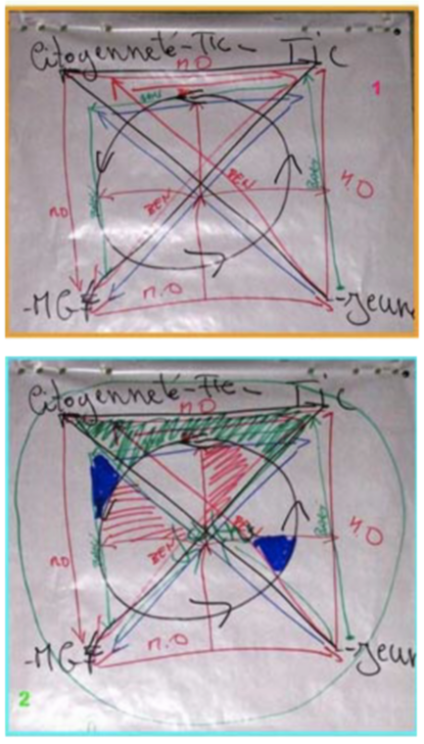 Citoyenneté-TIC- TiC
n.O
BEN
1
BEN
BEN
BEN
BEN
n.O
n.O
-MGF
n.O
-Jeun
Citoyenneté-TIC- TiC
n.O
BEN
BEN
BEN
n.O
n.O
-MGF
n.O
-Jeun
2